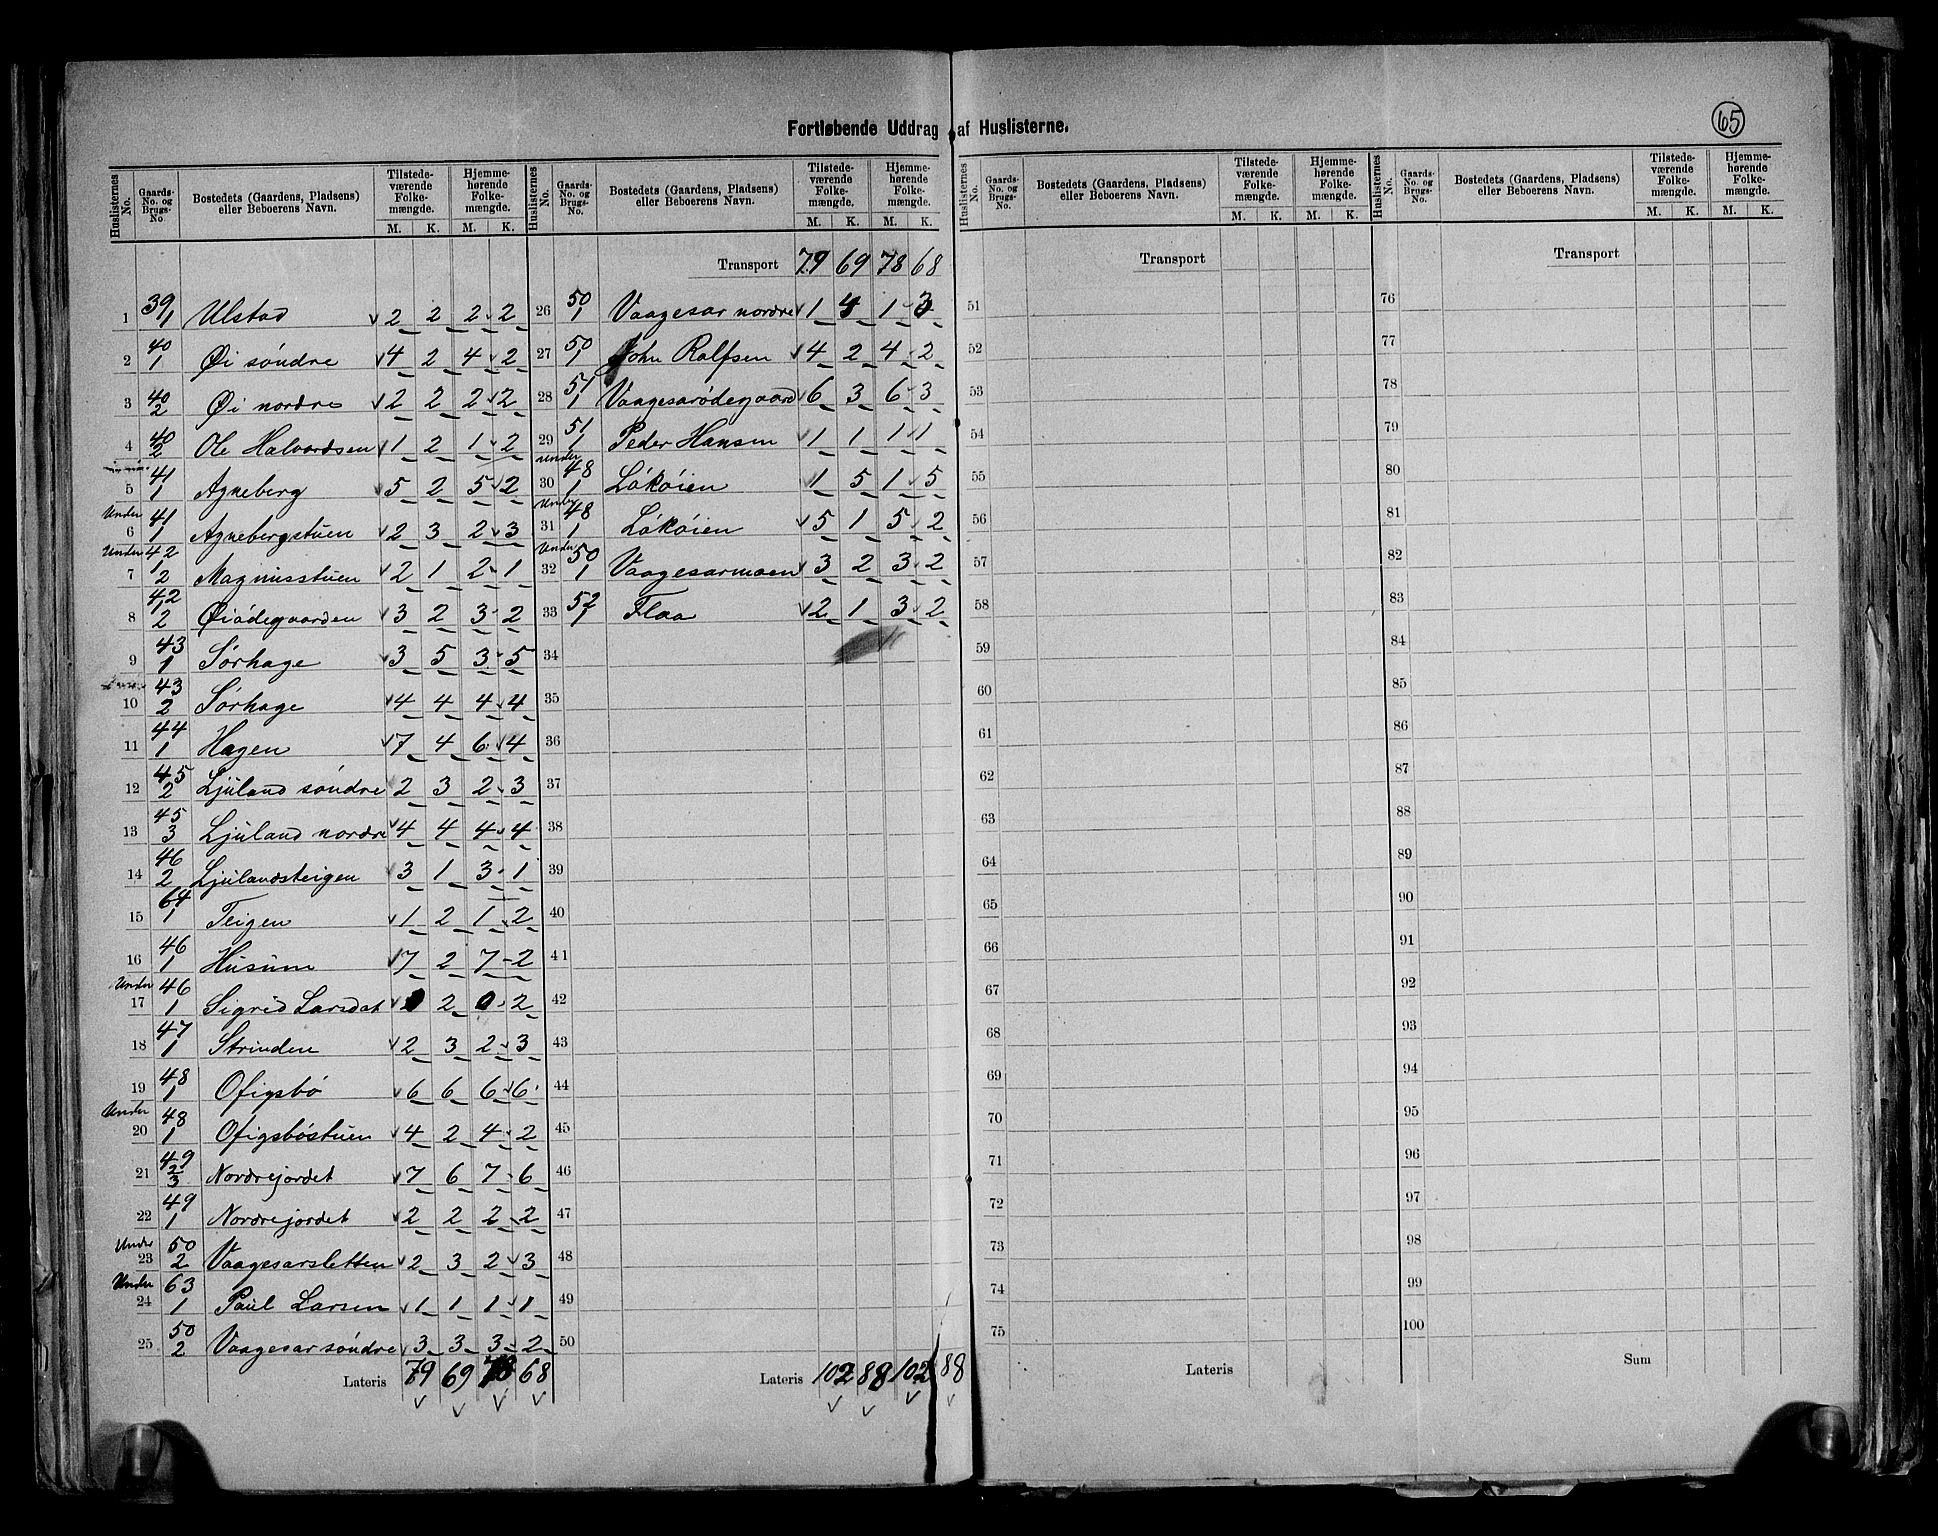 65
Fortløbende Uddrag af Huslisterne.
Huslisternes No. | Gaards-No. og Brugs-No. | Bostedets (Gaardens, Pladsens) eller Beboerens Navn. | Tilstedeværende Folkemængde. M. K. | Hjemmehørende Folkemængde. M. K.
1 | 39/1 | Ulstad | 2 | 2 | 2 | 2
2 | 40/1 | Øi søndre | 4 | 2 | 4 | 2
3 | 40/2 | Øi nordre | 2 | 2 | 2 | 2
4 | 40/2 | Ole Halvordsen | 1 | 2 | 1 | 2
5 | 41/1 | Agneberg | 5 | 2 | 5 | 2
Under 6 | 41/1 | Agnebergstuen | 2 | 3 | 2 | 3
Under 7 | 42/1 2 | Magnusstuen | 2 | 1 | 2 | 1
8 | 42/1 2 | Øiødegaarden | 3 | 2 | 3 | 2
9 | 43/1 | Sørhage | 3 | 5 | 3 | 5
10 | 43/2 | Sørhage | 4 | 4 | 4 | 4
11 | 44/1 | Hagen | 7 | 4 | 6 | 4
12 | 45/2 | Ljuland søndre | 2 | 3 | 2 | 3
13 | 45/3 | Ljuland nordre | 4 | 4 | 4 | 4
14 | 46/2 | Ljulandsteigen | 3 | 1 | 3 | 1
15 | 64/1 | Teigen | 1 | 2 | 1 | 2
16 | 46/1 | Husum | 7 | 2 | 7 | 2
Under 17 | 46/1 | Sigrid Larsdat | 0 | 2 | 0 | 2
18 | 47/1 | Strinden | 2 | 3 | 2 | 3
19 | 48/1 | Ofigsbø | 6 | 6 | 6 | 6
Under 20 | 48/1 | Ofigsbøstuen | 4 | 2 | 4 | 2
21 | 49/2 3 | Nordrejordet | 7 | 6 | 7 | 6
22 | 49/1 | Nordrejordet | 2 | 2 | 2 | 2
Under 23 | 50/2 | Vaagesarsletten | 2 | 3 | 2 | 3
Under 24 | 63/1 | Paul Larsen | 1 | 1 | 1 | 1
25 | 50/2 | Vaagesar søndre | 3 | 3 | 3 | 2
Lateris | 79 | 69 | 78 | 68
Huslisternes No. | Gaards-No. og Brugs-No. | Bostedets (Gaardens, Pladsens) eller Beboerens Navn. | Tilstedeværende Folkemængde. M. K. | Hjemmehørende Folkemængde. M. K.
Transport | 79 | 69 | 78 | 68
26 | 50/1 | Vaagesar nordre | 1 | 4 | 1 | 3
27 | 50/1 | John Rolfsen | 4 | 2 | 4 | 2
28 | 51/1 | Vaagesarødegaard | 6 | 3 | 6 | 3
29 | 51/1 | Peder Hansen | 1 | 1 | 1 | 1
Under 30 | 48/1 | Løkøien | 1 | 5 | 1 | 5
Under 31 | 48/1 | Løkøien | 5 | 1 | 5 | 2
Under 32 | 50/1 | Vaagesarmoen | 3 | 2 | 3 | 2
33 | 52/1 | Flaa | 2 | 1 | 3 | 2
34
35
36
37
38
39
40
41
42
43
44
45
46
47
48
49
50
Lateris | 102 | 88 | 102 | 88
Huslisternes No. | Gaards-No. og Brugs-No. | Bostedets (Gaardens, Pladsens) eller Beboerens Navn. | Tilstedeværende Folkemængde. M. K. | Hjemmehørende Folkemængde. M. K.
Transport
51
52
53
54
55
56
57
58
59
60
61
62
63
64
65
66
67
68
69
70
71
72
73
74
75
Lateris
Huslisternes No. | Gaards-No. og Brugs-No. | Bostedets (Gaardens, Pladsens) eller Beboerens Navn. | Tilstedeværende Folkemængde. M. K. | Hjemmehørende Folkemængde. M. K.
Transport
76
77
78
79
80
81
82
83
84
85
86
87
88
89
90
91
92
93
94
95
96
97
98
99
100
Sum